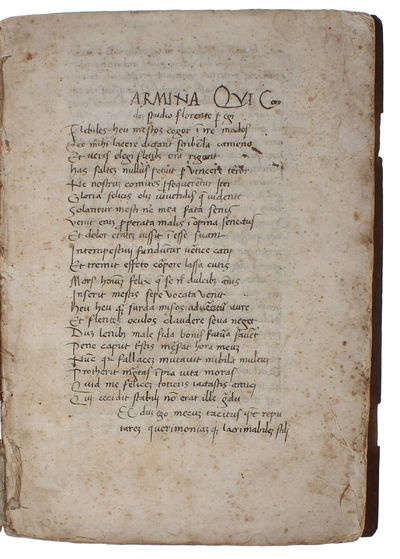 ARMINA QVI Con
da studio florente p egi
Flebiles heu mestos cogor i ire modos
Ecce mihi lacere dictant scribenda camene
Et ueris elegi fletibus ora rigant
Has saltez nullus potuit puincere terror
Ne nostrum comites psequerentur iter
Gloria felicis olim uiridisque iuuente
Solantur mesti nunc mea fata senis
Venit enim pperata malis inopina senectus
Et dolor etatem iussit inesse suam
Intempestiui funduntur uertice cani
Et tremit effeto corpore laxa cutis
Mors hominum felix que se nec dulcibus annis
Inserit mestis sepe uocata uenit
Heu heu quam surda miseros aduertitur aure
Et flentes oculos claudere seua neget
Dum leuibus male fida bonis fortuna faueret
Pene caput tristis merserat hora meum
Nunc quia fallacem mutauit nubila multum
Protherit ingratas impia uita moras
Quid me felicem totiens iactastis amici
Qui cecidit stabili non erat ille gradu
EC dum ego mecum tacitus ipse repu
tarez querimoniazque lacrimabilez stili